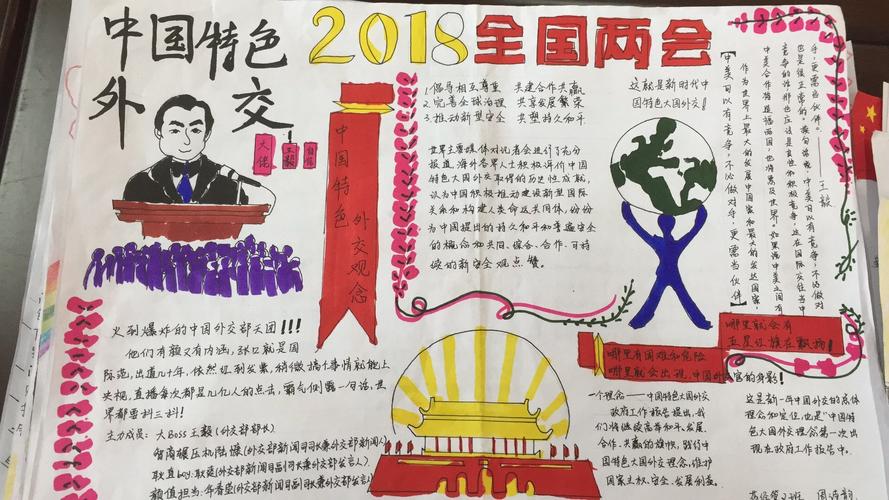 中国特色
外交
2018全国两会
大佬
王毅
中国特色
外交观念
1.倡导相互尊重 共建合作共赢
2.完善全球治理 共享发展繁荣
3.推动新型安全 共塑持久和平
世界主要媒体对记者会进行了充分
报道,海外各界人士积极评价中国
特色大国外交取得的历史性成就,
认为中国积极推动建设新型国际
关系和构建人类命运共同体,纷纷
为中国提出的持久和平和普遍安全
的概念和共同、综合、合作、可持
续的新安全观点赞。
这就是新时代中
国特色大国外交!
【中美可以有竞争,不必做对手,更需当伙伴】
作为世界上最大的发展中国家和最大的发达国家,
中美合作将造福两国,也将惠及世界。如果说中美之间有
竞争的话,那也应该是良性和积极竞争,这在国际交往当中
也是很正常的。换句话说,中美可以有竞争,不必做对
手,更需当伙伴。——王毅
哪里就会有
五星红旗在飘扬!
哪里有困难和危险
哪里就会出现,中国外交官的身影!
火到爆炸的中国外交部天团!!!
他们有颜又有内涵,张口就是国
际范,出道几十年,依然红到发紫,稍微搞个事情就能上
央视,直播每次都是几亿人的点击,霸气侧露一句话,世
界都要抖三抖!
主力成员:大Boss王毅(外交部部长)
智商碾压机陆慷(外交部新闻司司长兼外交部新闻人)
耿直boy:耿爽(外交部新闻司副司长兼外交部发言人)
颜值担当:华春莹(外交部新闻司副司长兼外交部发言人)
一个理念——中国特色大国外交
政府工作报告提出,我
们将继续高举和平、发展、
合作、共赢的旗帜,践行中
国特色大国外交理念,维护
国家主权、安全、发展利益。
这是新一年中国外交的总体
理念和定位,也是“中国特
色大国外交理念第一次出
现在政府工作报告中。